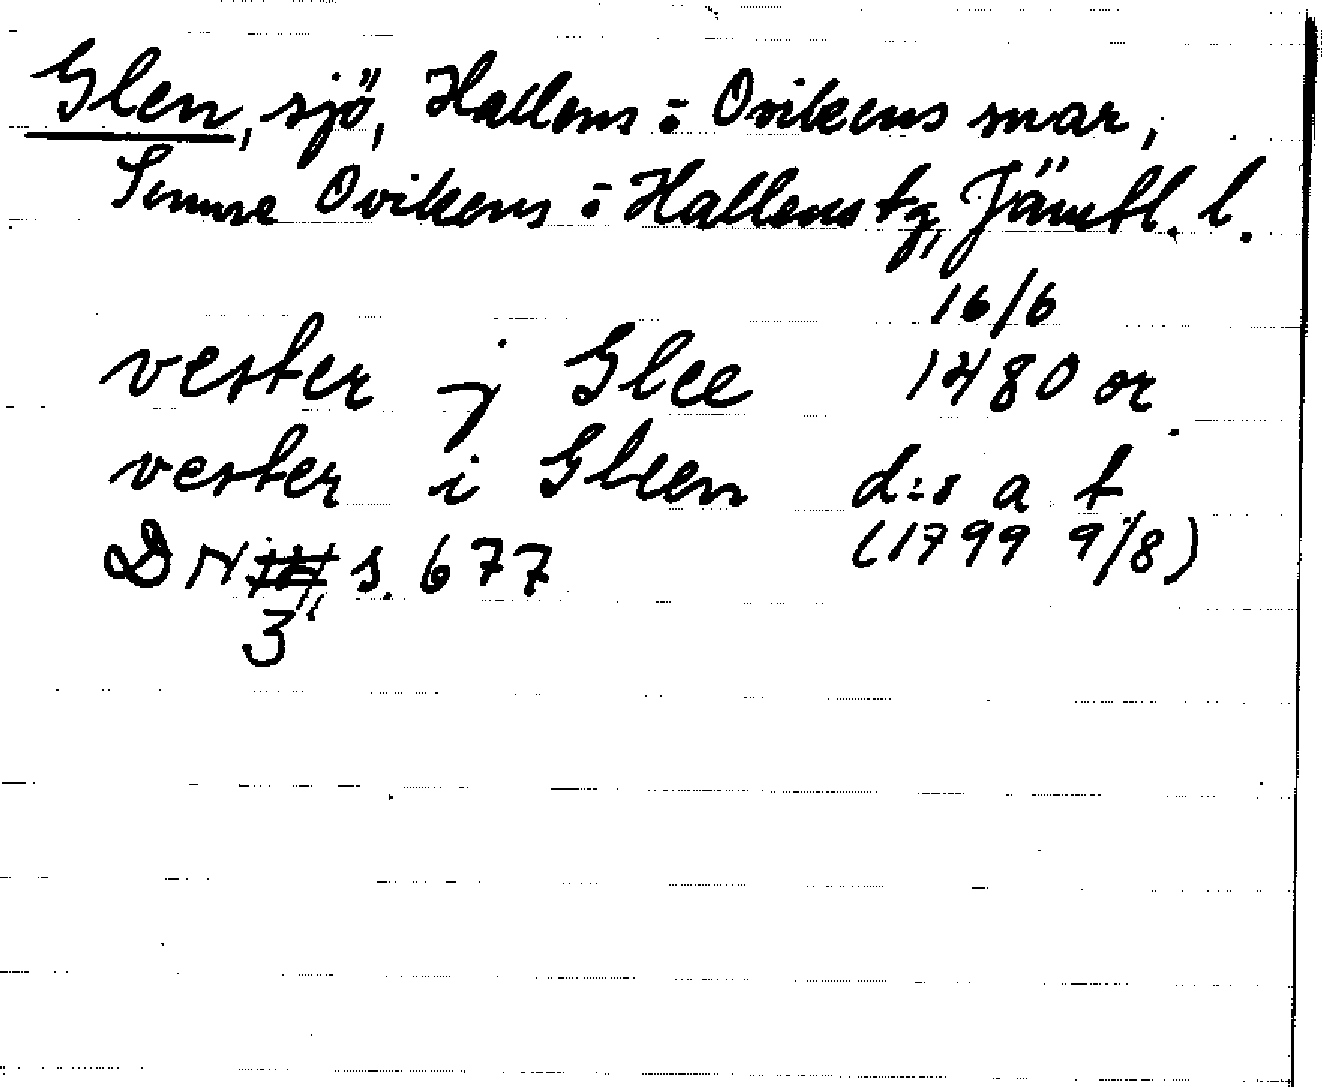 Glen, sjö, Hallens o Ovikens snar,
Sunne Ovikens o Hallens tg, Jämtl. l.
16/6
vester j Glee 1480 or
vester i Gleen d:s a t
DN s. 677 (1799 9/8)
3